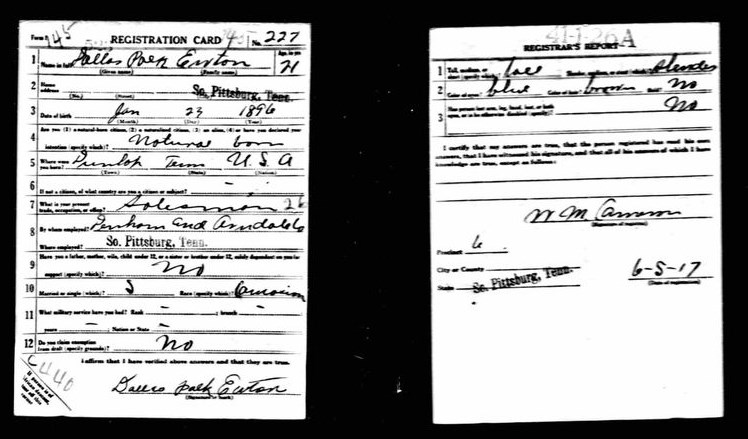 Form 1 145 REGISTRATION CARD No. 227
1 Name in full Dallas Polk Ewton Age, in yrs. 21
(Given name) (Family name)
2 Home address So. Pittsburg, Tenn.
(No.) (Street)
3 Date of birth Jan 23 1896
(Month) (Day) (Year)
4 Are you (1) a natural-born citizen, (2) a naturalized citizen, (3) an alien, (4) or have you declared your
intention (specify which)? Natural born
5 Where were you born? Dunlap Tenn U.S.A
(Town) (State) (Nation)
6 If not a citizen, of what country are you a citizen or subject? —
7 What is your present trade, occupation, or office? Salesman 26
8 By whom employed?
Where employed? So. Pittsburg, Tenn.
9 Have you a father, mother, wife, child under 12, or a sister or brother under 12, solely dependent on you for
support (specify which)? No
10 Married or single (which)? S Race (specify which)?
11 What military service have you had? Rank — ; branch —
years — ; Nation or State —
12 Do you claim exemption from draft (specify grounds)? No
I affirm that I have verified above answers and that they are true.
C440
Dallas Polk Ewton
(Signature or mark)
41-1-26 A
REGISTRAR'S REPORT
1 Tall, medium, or short (specify which)? tall Slender, medium, or stout (which)? slender
2 Color of eyes? blue Color of hair? brown Bald? No
3 Has person lost arm, leg, hand, foot, or both eyes, or is he otherwise disabled (specify)? No
I certify that my answers are true, that the person registered has read his own
answers, that I have witnessed his signature, and that all of his answers of which I have
knowledge are true, except as follows:
W M Cameron
(Signature of registrar)
Precinct 6
City or County
State So. Pittsburg, Tenn.
6-5-17
(Date of registration)